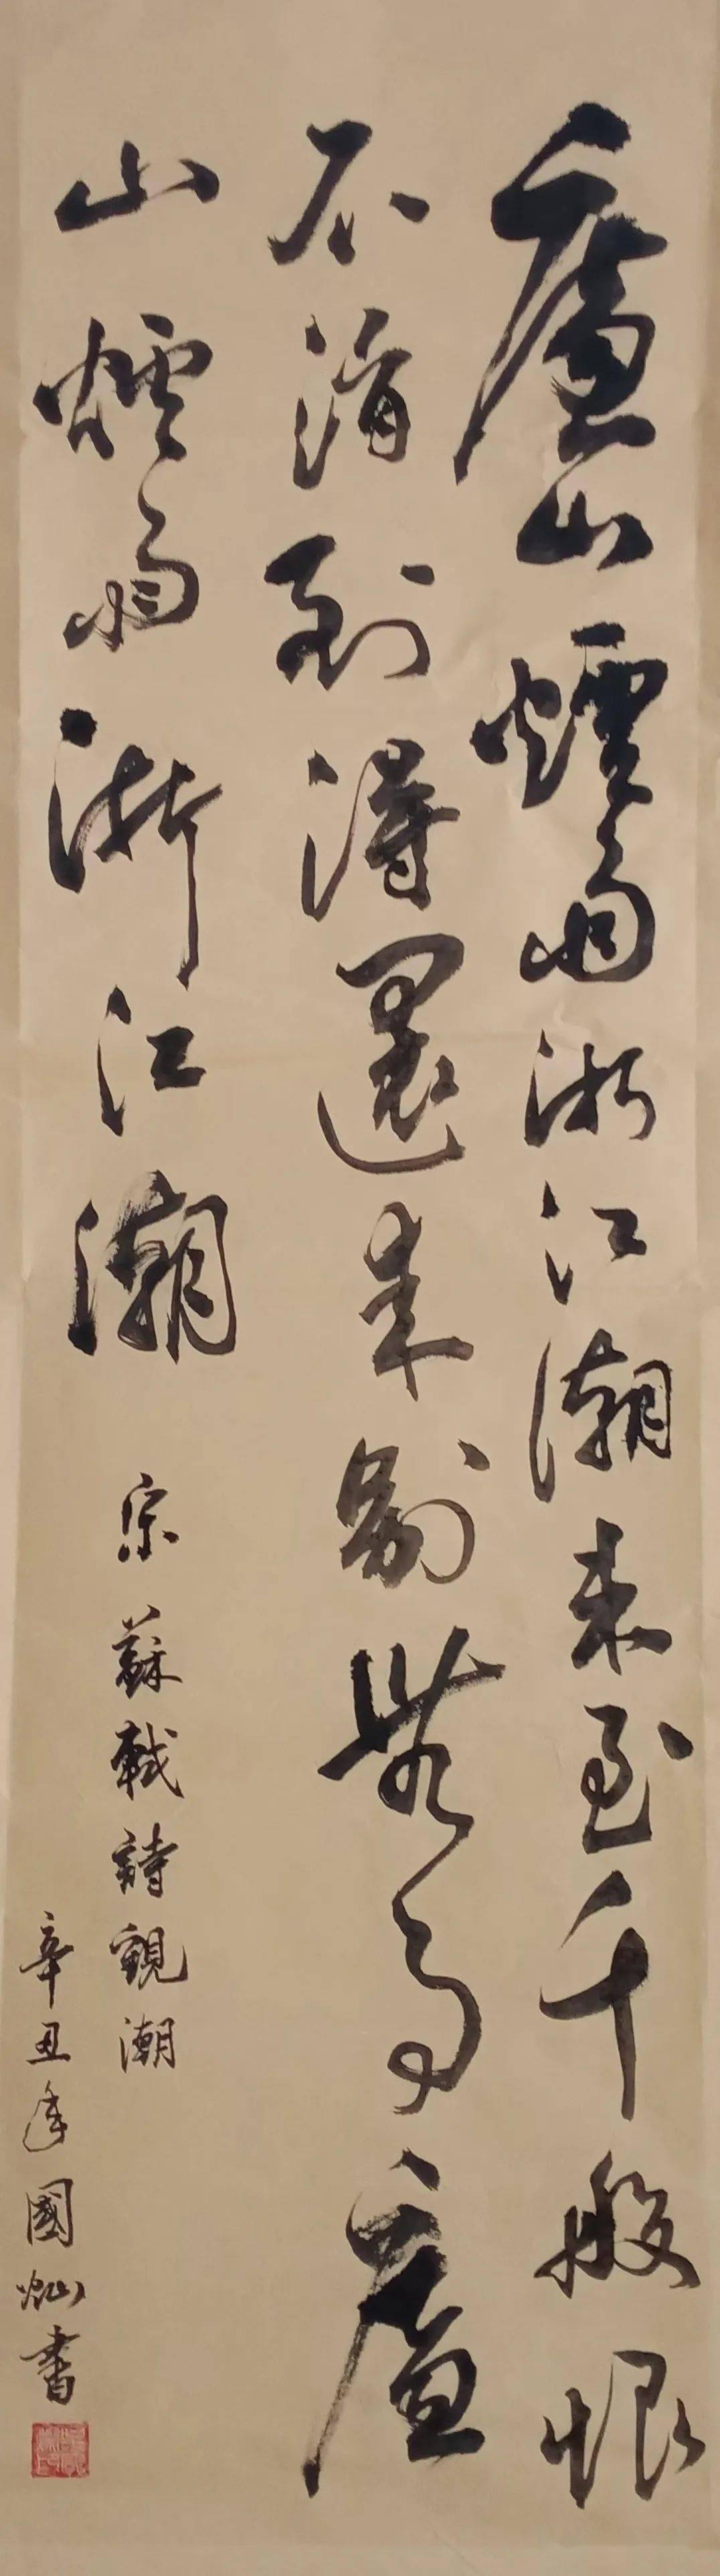 廬山煙雨浙江潮未至千般恨
不消到得還來別無事廬
山煙雨浙江潮
宗蘇軾詩觀潮
辛丑年國燦書